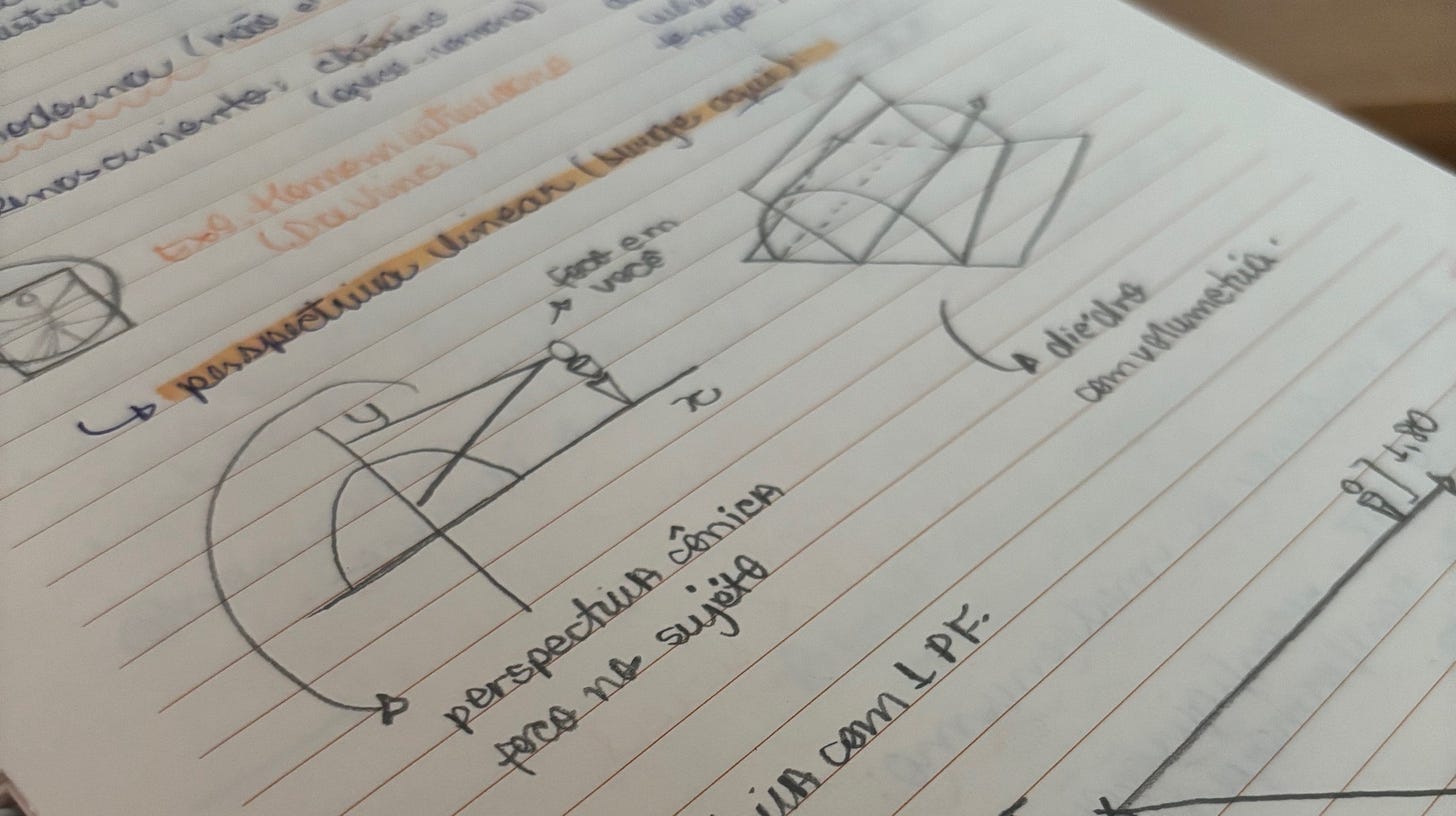 moderna (não
Renascimento: clássico
(greco-romano)
Ex.: Homem vitruviano
(Da Vinci)
↳ perspectiva linear (surge aqui)
foco em
você
y
x
diedro
com volumetria.
perspectiva cônica
foco no sujeito
1,80
com 1 PF.